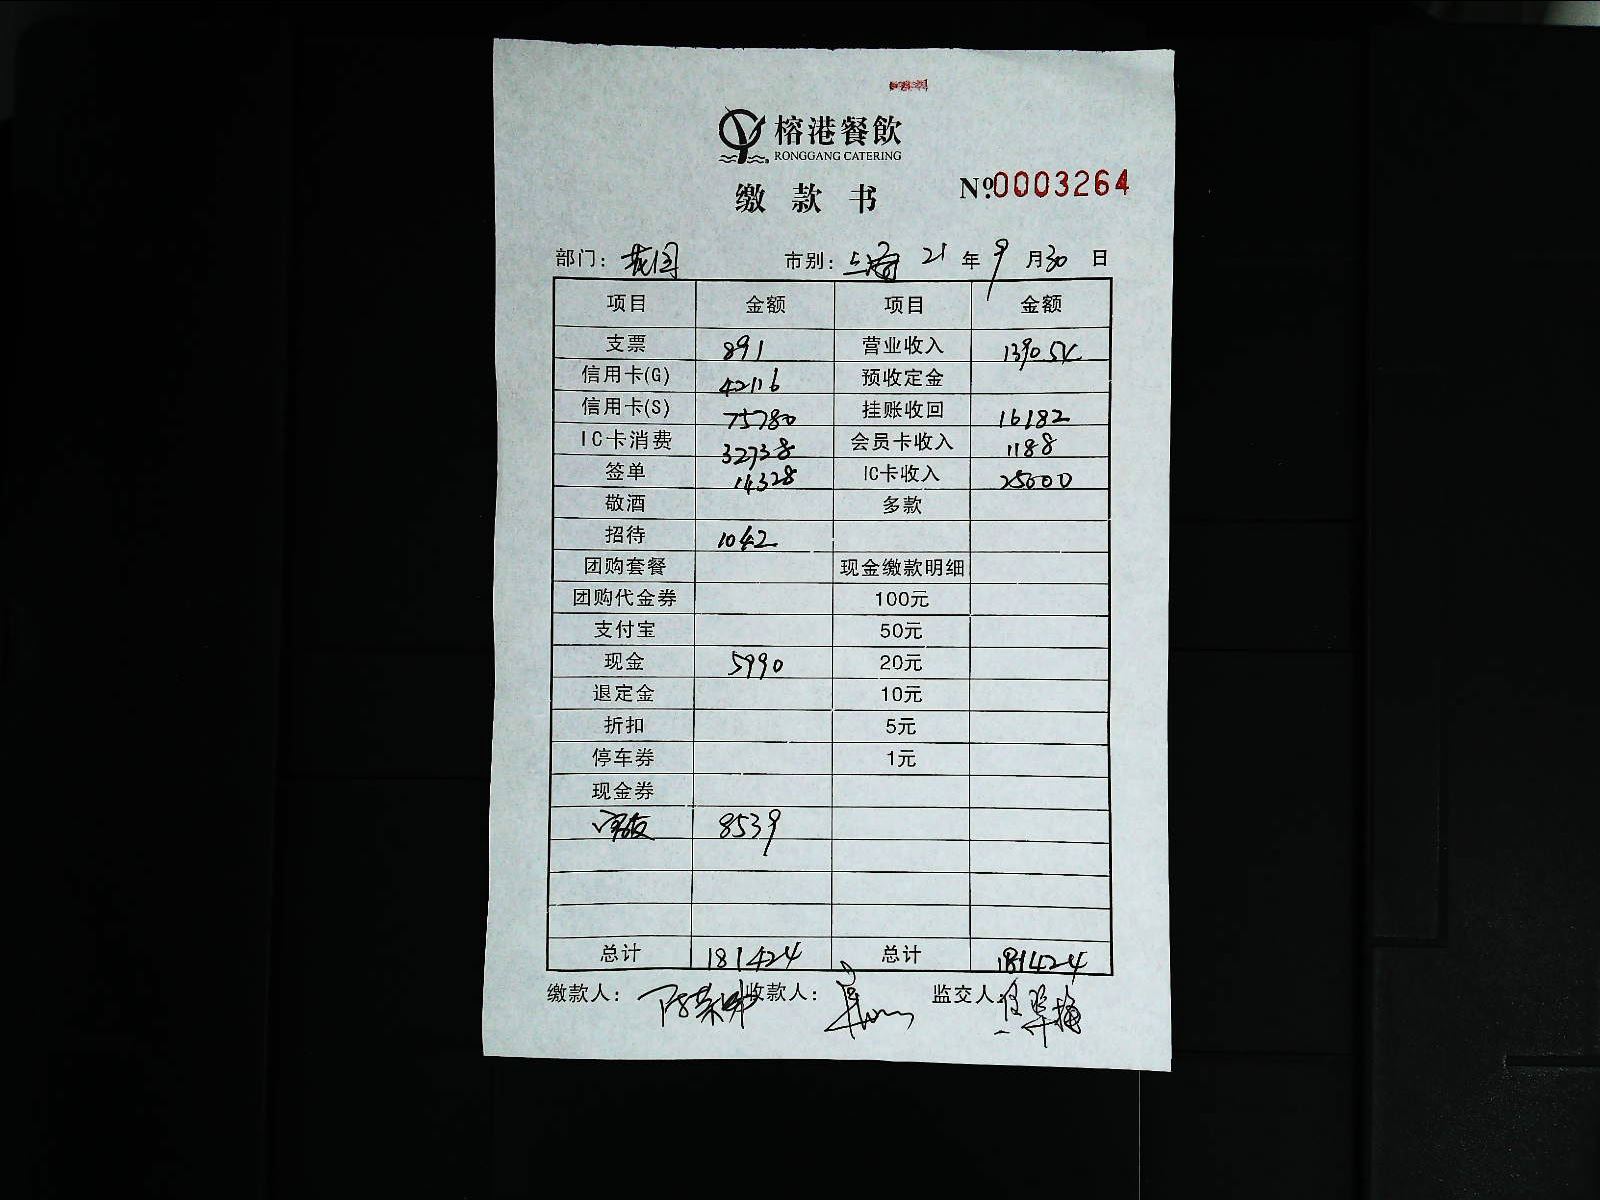 榕港餐飲
RONGGANG CATERING
缴款书 №0003264
部门： 市别：上海 21 年 9 月 30 日
项目 金额 项目 金额
支票 891 营业收入 139054
信用卡(G) 42116 预收定金
信用卡(S) 75780 挂账收回 16182
IC卡消费 32738 会员卡收入 1188
签单 14328 IC卡收入 25000
敬酒 多款
招待 1042
团购套餐 现金缴款明细
团购代金券 100元
支付宝 50元
现金 5990 20元
退定金 10元
折扣 5元
停车券 1元
现金券
8539
总计 181424 总计 181424
缴款人： 收款人： 监交人：